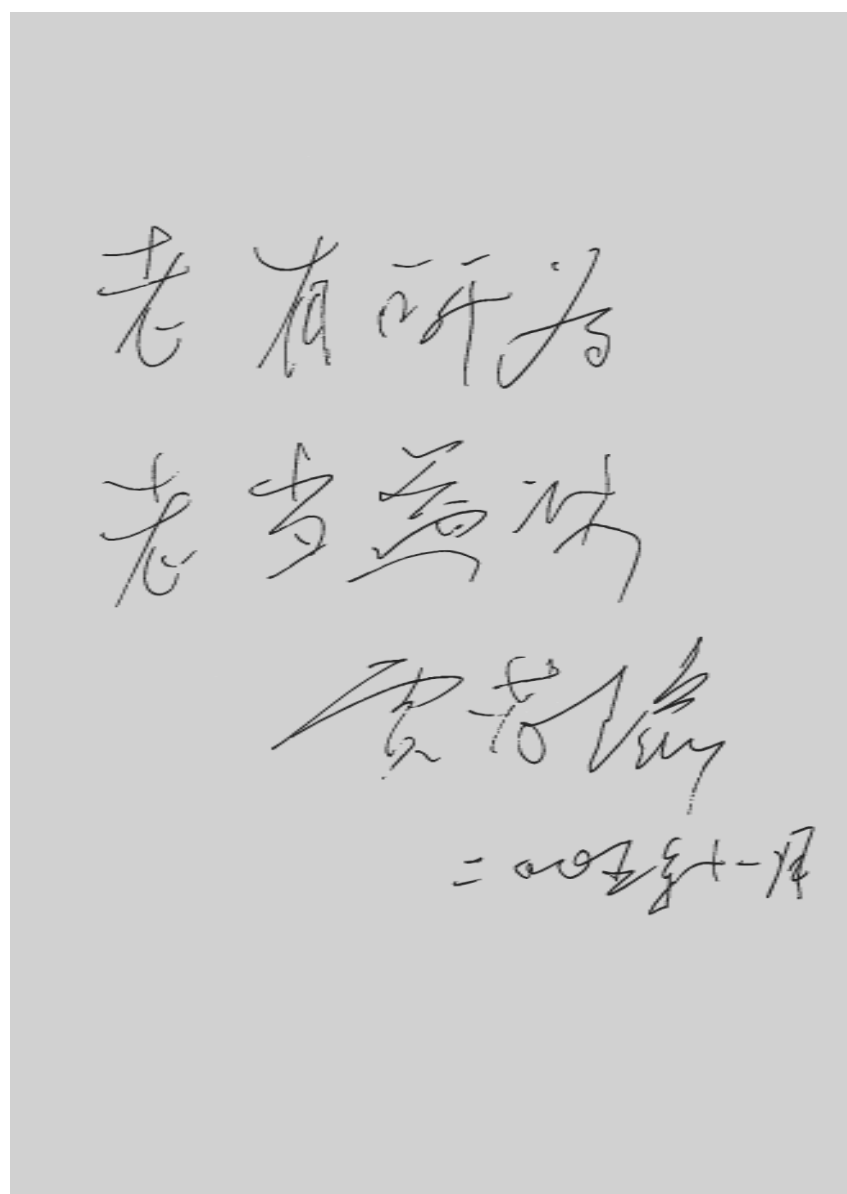 老有所为
老当益壮
贾若瑜
二〇〇五年十一月